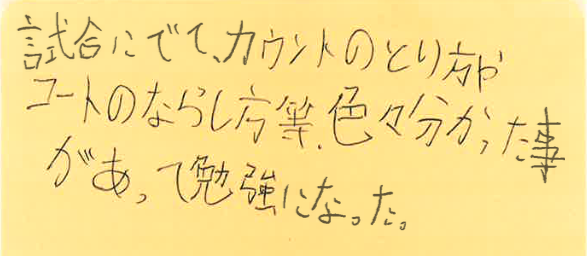 試合にでて、カウントのとり方や
コートのならし方等、色々分かった事
があって勉強になった。